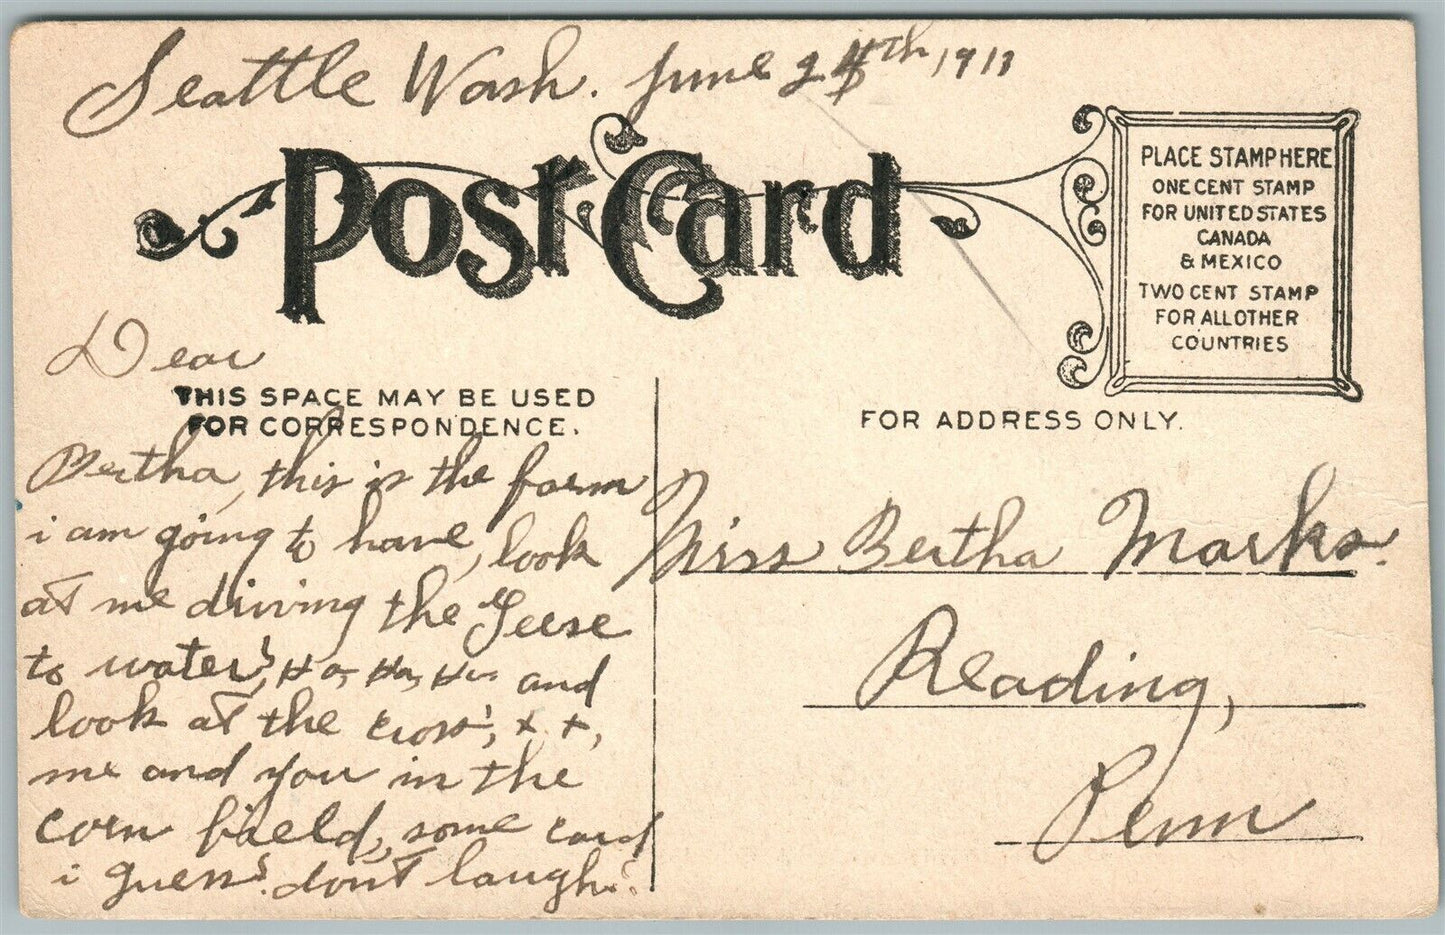 Seattle Wash. June 24th, 1911
Post Card
PLACE STAMP HERE
ONE CENT STAMP
FOR UNITED STATES
CANADA
& MEXICO
TWO CENT STAMP
FOR ALL OTHER
COUNTRIES
Dear
THIS SPACE MAY BE USED
FOR CORRESPONDENCE.
Bertha, this is the farm
i am going to have, look
at me driving the Geese
to water, Ha, Ha, Ha, and
look at the cross, x x,
me and you in the
corn field, some card
i guess. dont laugh.
FOR ADDRESS ONLY.
Miss Bertha Marks.
Reading,
Penn